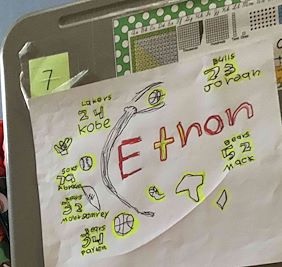 7
Lakers
24
Kobe
Bulls
23
Jordan
Ethon
Bears
52
Mack
Sox
79
Bears
Bears
34
Payton